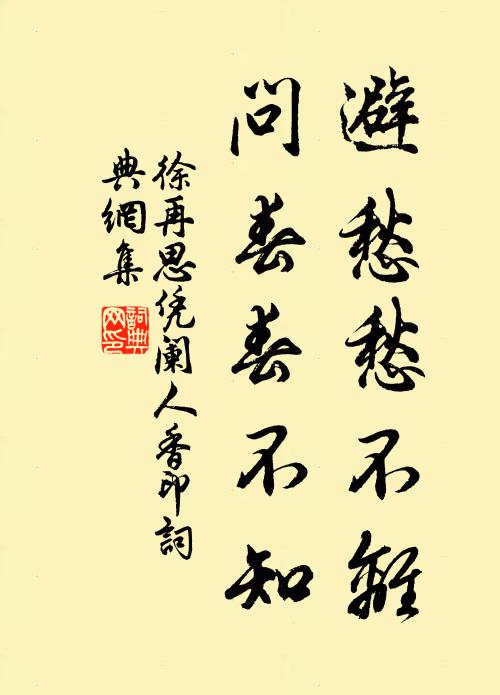 避愁愁不離
問春春不知
徐再思凭闌人香印詞
典網集
詞典网印